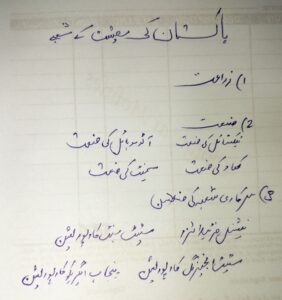 پاکستان کی معیشت کے شعبے
1) زراعت
2) صنعت
ٹیکسٹائل کی صنعت آٹوموبائل کی صنعت
کھاد کی صنعت سیمنٹ کی صنعت
3) سرکاری شعبہ کی
نیشنل فرٹیلائزر کارپوریشن
سٹیٹ انجینئرنگ کارپوریشن پنجاب کارپوریشن